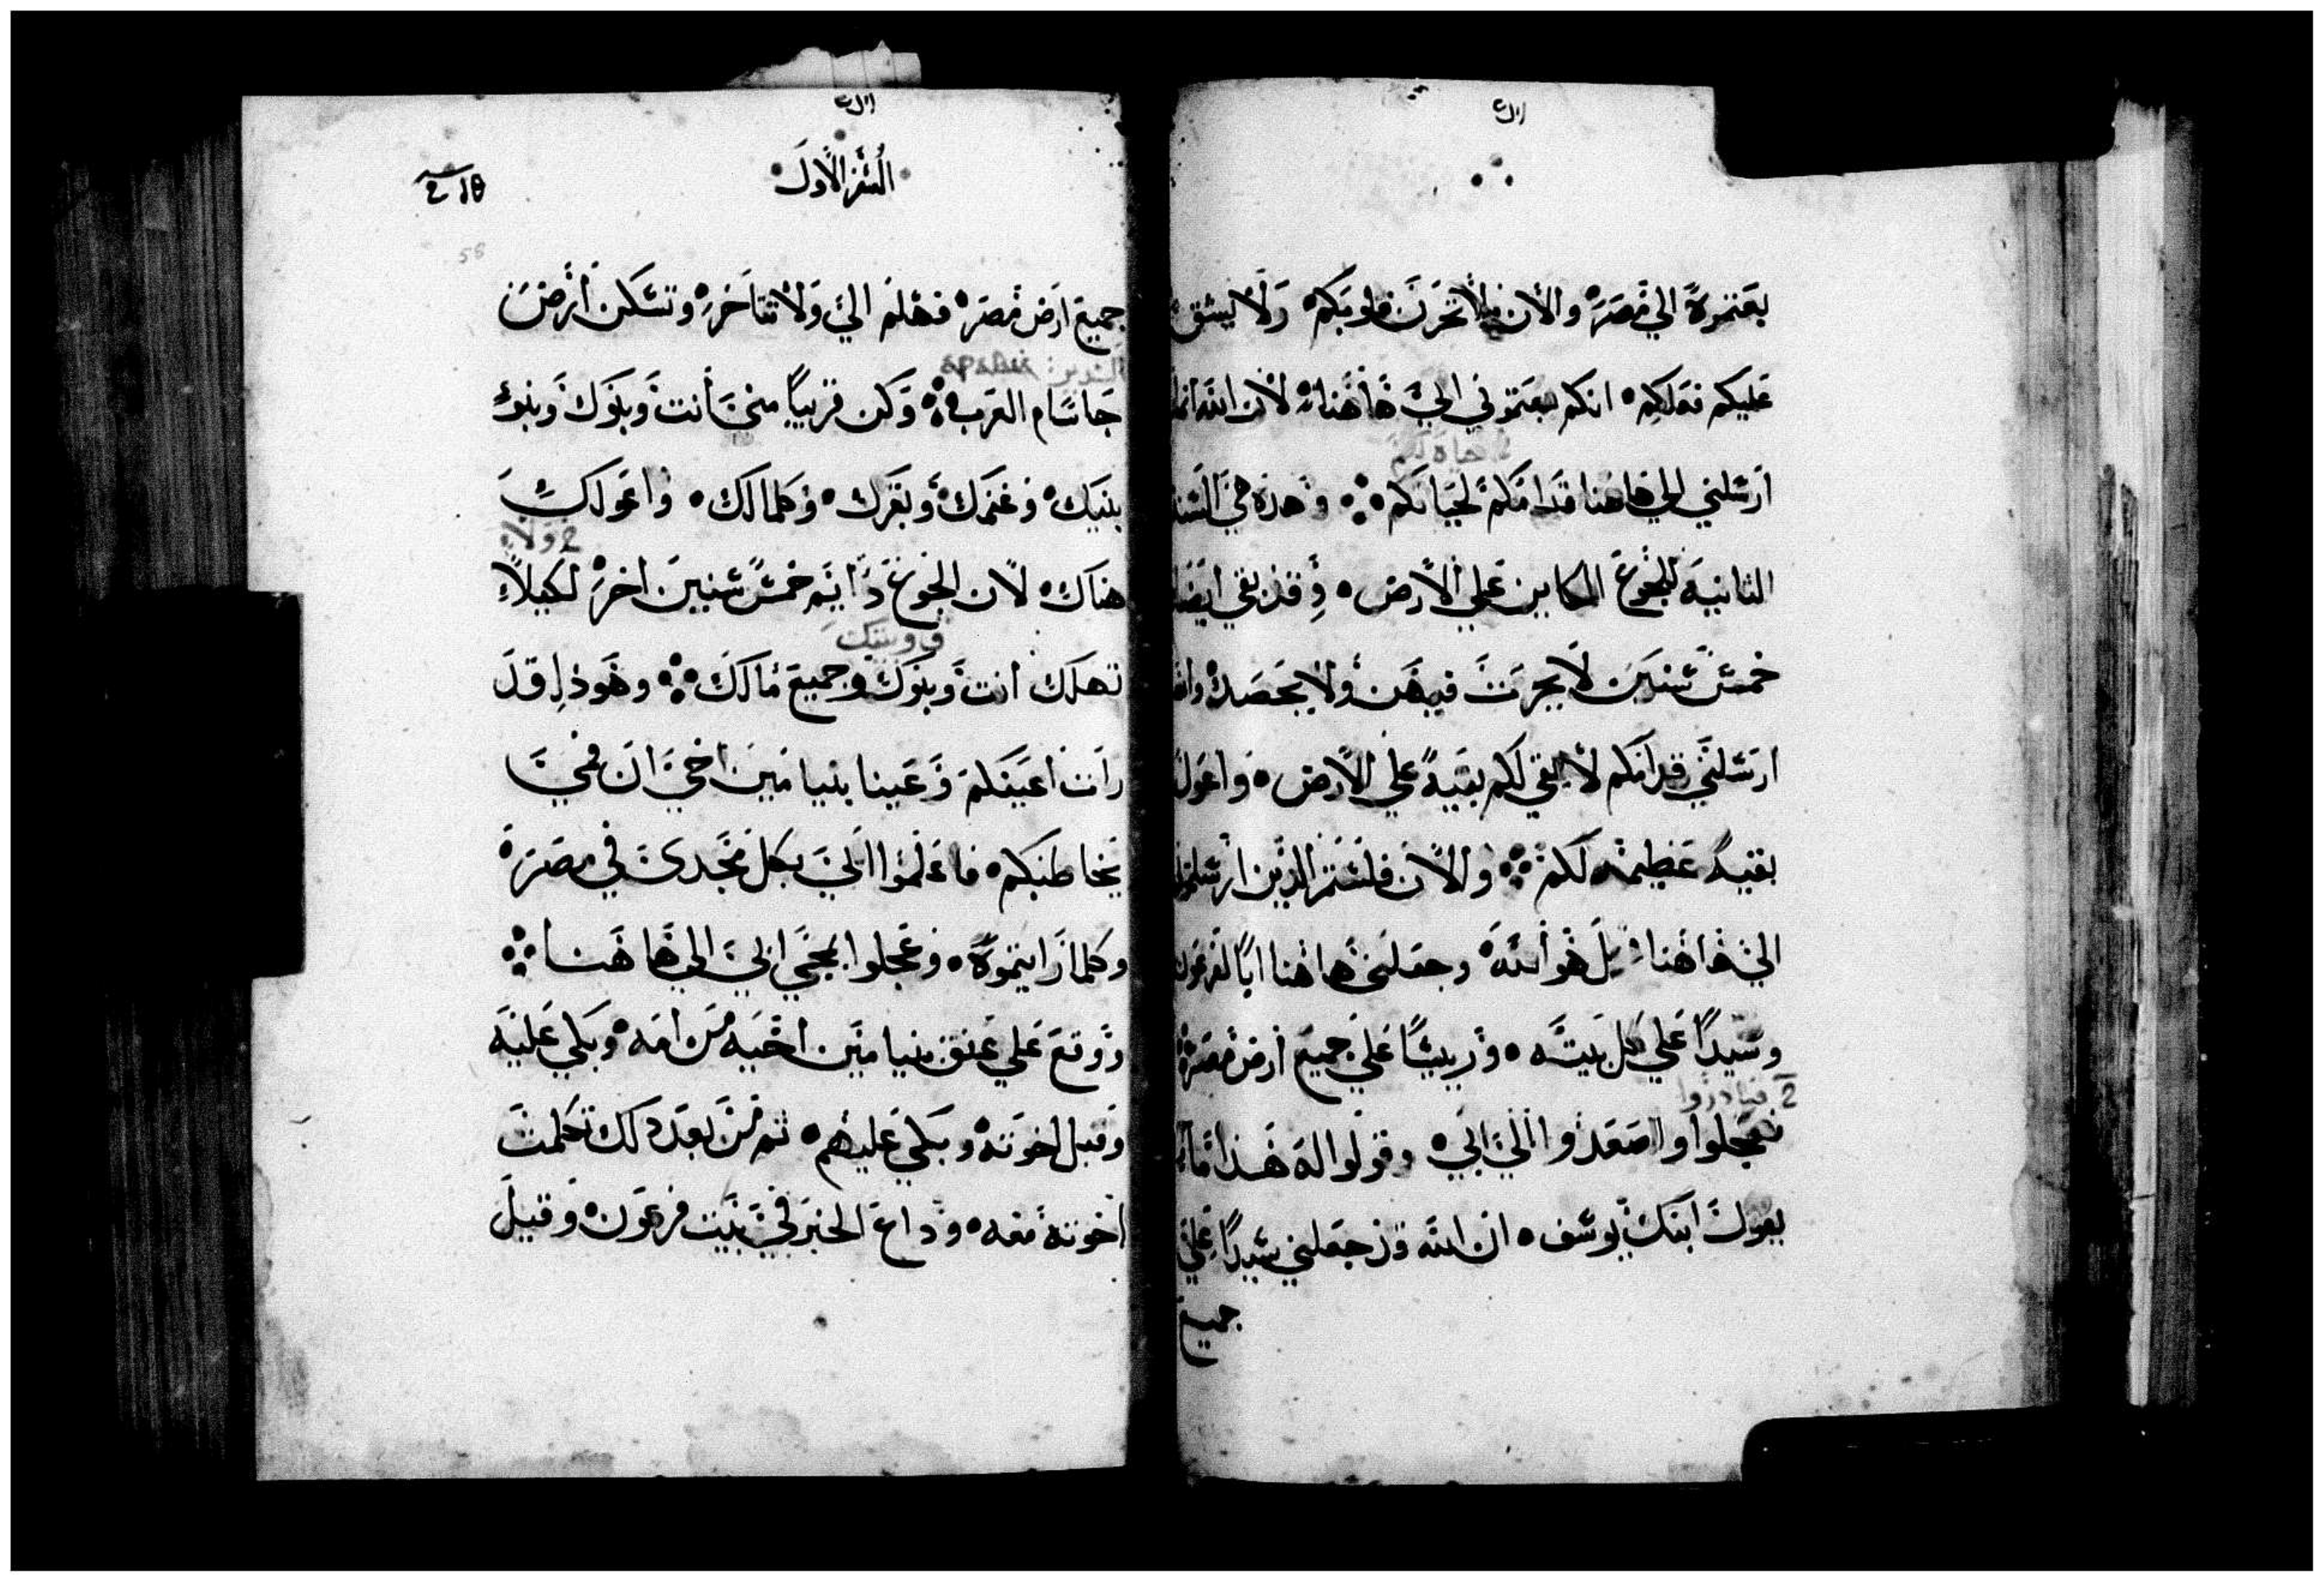 بعتموه الي مصر والان فلا تحزن قلوبكم ولا يشق
عليكم فعلكم انكم بعتموني الي هاهنا لان الله انما
2 حياة لكم
ارسلني الي هاهنا قدامكم لحياتكم وهذه هي السنه
الثانيه للجوع الكاين علي الارض وقد بقي ايضا
خمس سنين لا يحرث فيهن ولا يحصد والله
ارسلني قدامكم لابقي لكم بقيه علي الارض واعول
بقيه عظيمه لكم والان فلستم الذين ارسلتموني
الي هاهنا بل هو الله وجعلني هاهنا ابا لفرعون
وسيدا علي كل بيته ورييسا علي جميع ارض مصر
2 فبادروا
فعجلوا واصعدوا الي ابي وقولوا له هذا ما
يقول ابنك يوسف ان الله قد جعلني سيدا علي
جميع
السفر الاول
58
جميع ارض مصر فهلم الي ولا تتاخر وتسكن ارض
جاسام العرب وتكن قريبا مني انت وبنوك وبنو
بنيك وغنمك وبقرك وكلما لك واعولك
2 ولا
هناك لان الجوع دايم خمس سنين اخر لكيلا
ق وبيتك
تهلك انت وبنوك وجميع مالك وهوذا قد
رات اعينكم وعينا بنيامين اخي ان فمي
يخاطبكم فاعلموا ابي بكل مجدي في مصر
وكلما رايتموه وعجلوا بمجي ابي الي هاهنا
ووقع علي عنق بنيامين اخيه من امه وبكي عليه
وقبل اخوته وبكي عليهم ثم من بعد ذلك تكلمت
اخوته معه وذاع الخبر في بيت فرعون وقيل